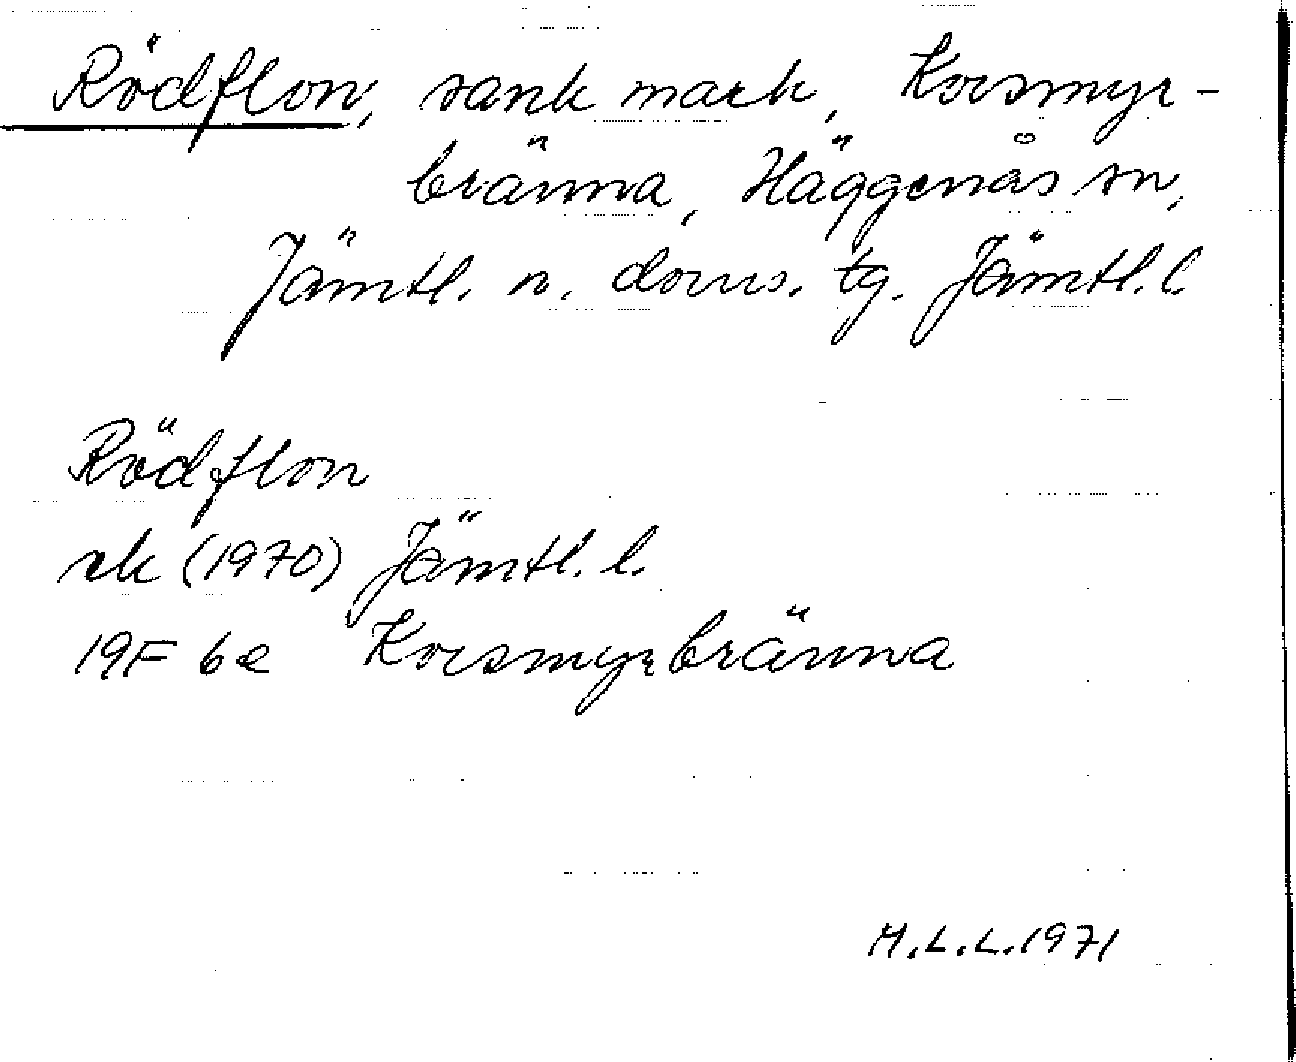 Rödflon, sank mark, Korsmyr-
bränna, Häggenås sn,
Jämtl. n. doms. tg. Jämtl. l.
Rödflon
rk (1970) Jämtl. l.
19F 6e Korsmyrbränna
M.L.L. 1971